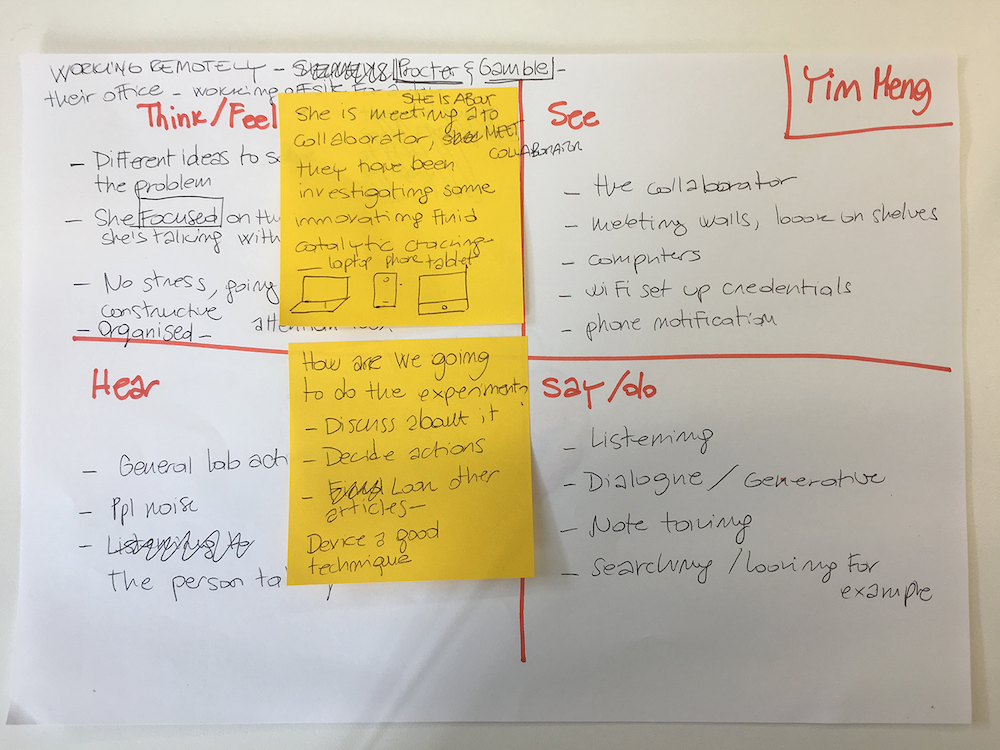 WORKING REMOTELY - Procter & Gamble -
their office - working
Yim Meng
Think/Feel
- Different ideas to
the problem
- She Focused on
she's talking with
- No stress, going
constructive
- Organised -
SHE IS ABOUT
She is meeting a to
collaborator, MEET
COLLABORATOR
they have been
investigating some
innovating fluid
catalytic cracking
- laptop phone tablet
See
- the collaborator
- meeting walls, book on shelves
- computers
- wifi set up credentials
- phone notification
Hear
- General lab
- Ppl noise
- Listening to
The person
How are we going
to do the experiment?
- Discuss about it
- Decide actions
- Find Loan other
articles -
Device a good
technique
Say/do
- Listening
- Dialogue / Generative
- Note taking
- Searching / looking for
example